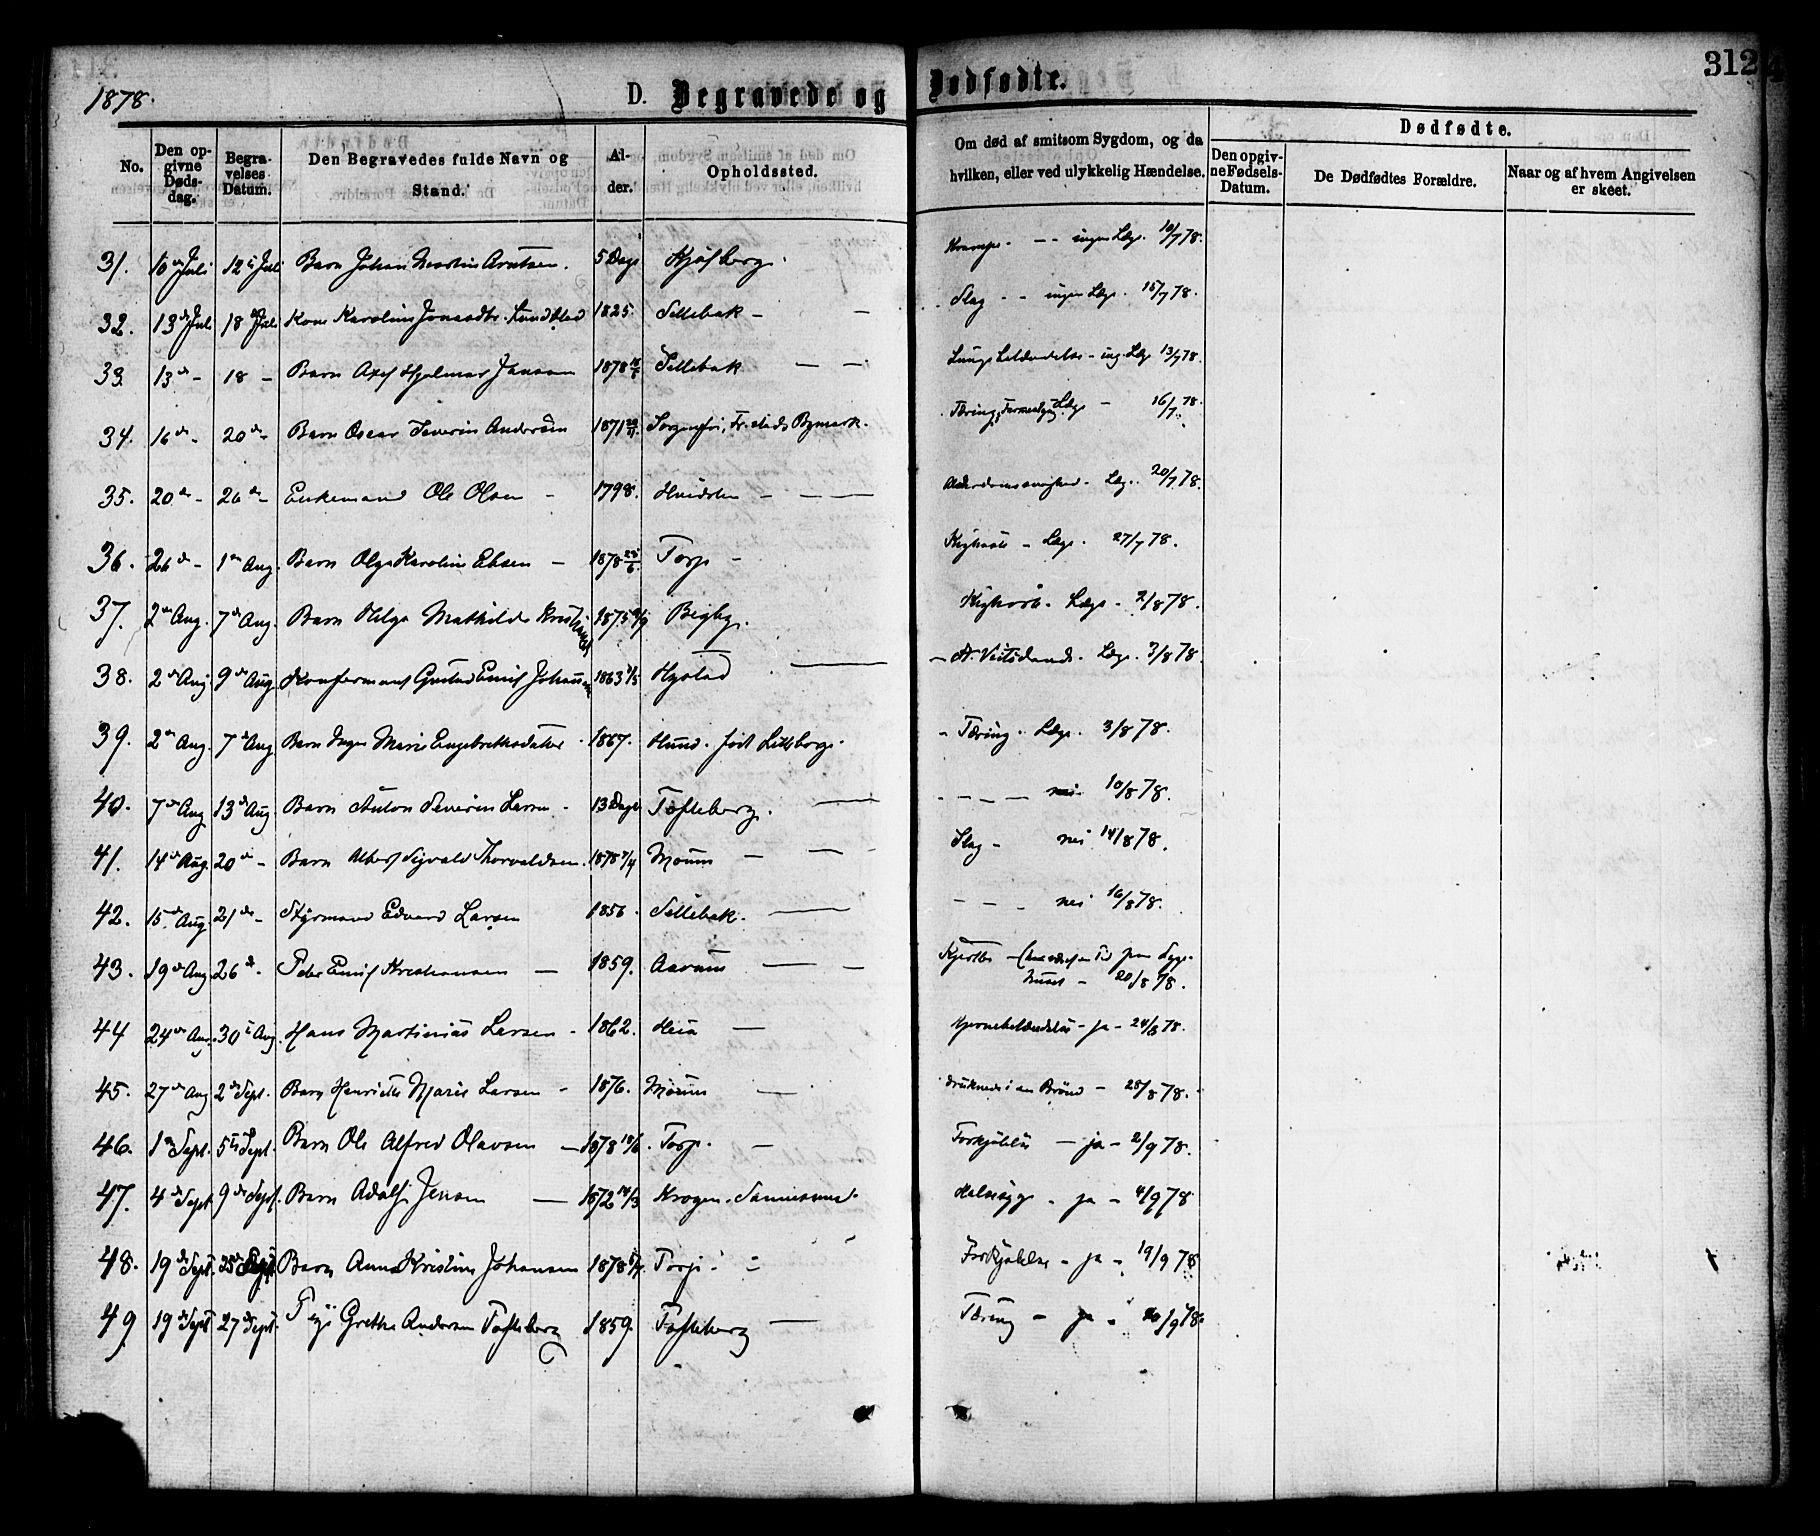 312
1878.
D. Begravede og Dødfødte.
No.
Den opgivne Dødsdag.
Begravelses Datum.
Den Begravedes fulde Navn og Stand.
Alder.
Opholdssted.
Om død af smitsom Sygdom, og da hvilken, eller ved ulykkelig Hændelse.
Dødfødte.
Den opgivne Fødsels-Datum.
De Dødfødtes Forældre.
Naar og af hvem Angivelsen er skeet.
31. 10de Juli 12te Juli Barn Johan Martin 5 Dage Krampe - - ingen Læge. 10/7 78.
32. 13de Juli 18de Juli Kone Karoline 1825. Sellebak - - Slag - - ingen Læge. 15/7 78.
33. 13de - 18 - Barn Axel Hjalmar Jansen 1878 Sellebak - - - ing. Læge 13/7 78.
34. 16de - 20de - Barn Oscar Severin Andersen 1871 Sorgenfri, Fr.stads Bymark. Tæring, Læge - 16/7 78.
35. 20de - 26de - Enkemand Ole Olsen - 1798. Hvidsten - - - Læge. 20/7 78.
36. 26de - 1ste Aug. Barn Olga Karoline Ebsen - 1878 Torp - Kighoste - Læge. 27/7 78.
37. 2den Aug. 7de Aug. Barn Helga Mathilde 1875 Begby. Kighoste - Læge - 2/8 78.
38. 2den Aug 9de Aug Konfirmant Gustav Emil Johansen 1863 Hystad - St. Veitsdands. Læge. 3/8 78.
39. 2den Aug. 7de Aug Barn Inger Marie Engebretsdatter 1867. Hund. - Tæring. Læge. 3/8 78.
40. 7de Aug 13de Aug. Barn Anton Severin Larsen - 13 Dage Tofteberg. - - - - - nei 10/8 78.
41. 14de Aug. 20de - Barn Albert Sigvald Thorvaldsen. 1878 Moum - - - Slag - nei 14/8 78.
42. 15de Aug. 21de - Styrmand Edvard Larsen 1856. Sellebak. - - - - nei 16/8 78.
43. 19de Aug 26de - Peder Emil Kristiansen - 1859. Aarum - - - 20/8 78.
44 24de Aug. 30te Aug. Hans Martinius Larsen - 1862. Heia - Hjernebetændelse - ja - 24/8 78.
45. 27de Aug 2den Sept. Barn Henriette Marie Larsen - 1876. Moum - druknede i en Brønd - 28/8 78.
46. 1ste Sept. 5te Sept. Barn Ole Alfred Olavsen - 1878 Torp. - Forkjølelse - ja - 2/9 78.
47. 4de Sept 9de Sept. Barn Adolf Jensen - 1872 Krogen, Halssyge - ja - 4/9 78
48. 19de Sept. 25de Sept. Barn Anna Kristine Johansen 1878 Torp - - Forkjølelse - ja - 19/9 78
49. 19de Sept 27de Sept. Pige Grethe Andersen Tofteberg 1859. Tofteberg - Tæring - ja - 20/9 78.